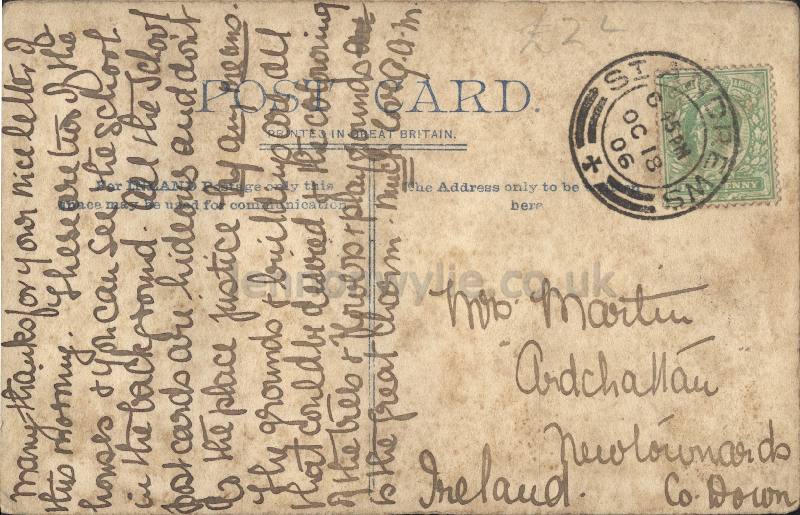 £2
POST CARD.
PRINTED IN GREAT BRITAIN.
For INLAND Postage only this
space may be used for communication
the Address only to be written
here
ST ANDREWS
6 45 PM
OC 18
06
PENNY
Many thanks for your nice letter of
this morning. These are two of the
houses & you can see the School
in the background. All the School
postcards are hideous and don't
do the place justice by any means.
The grounds & buildings are all
that could be desired the colouring
of the trees & flowers & playgrounds
is the great charm. Much love G.A.M
Mrs Martin
Ardchattan
Newtownards
Ireland. Co. Down
lennonwylie.co.uk